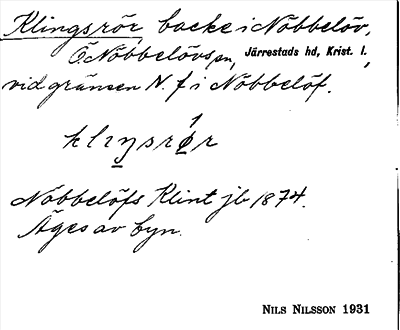 Klingsrör, backe i Nöbbelöv,
Ö. Nöbbelövs sn, Järrestads hd, Krist. l.,
vid gränsen N. f i Nöbbelöf.
Nöbbelöfs Klint jb 1874.
Äges av byn.
NILS NILSSON 1931